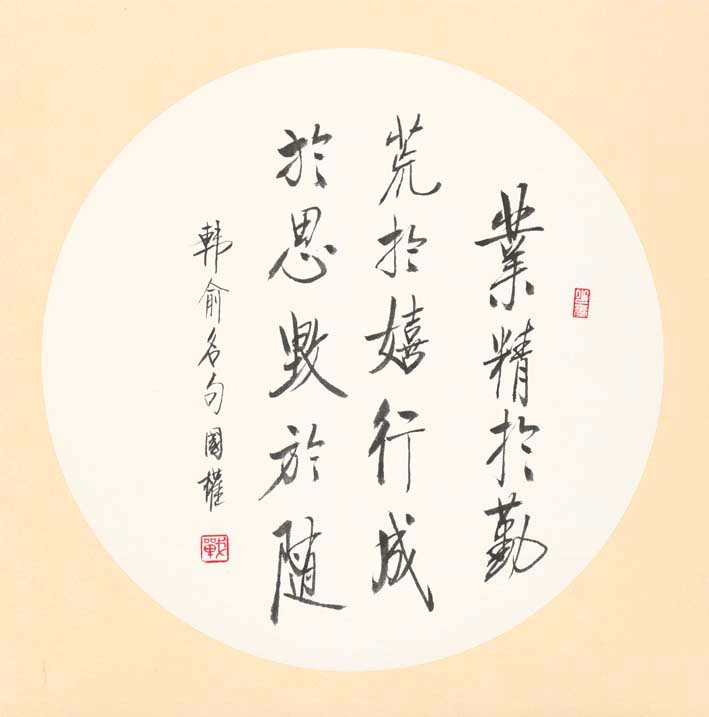 業精於勤
荒於嬉行成
於思毀於随
韩俞名句國權
戰